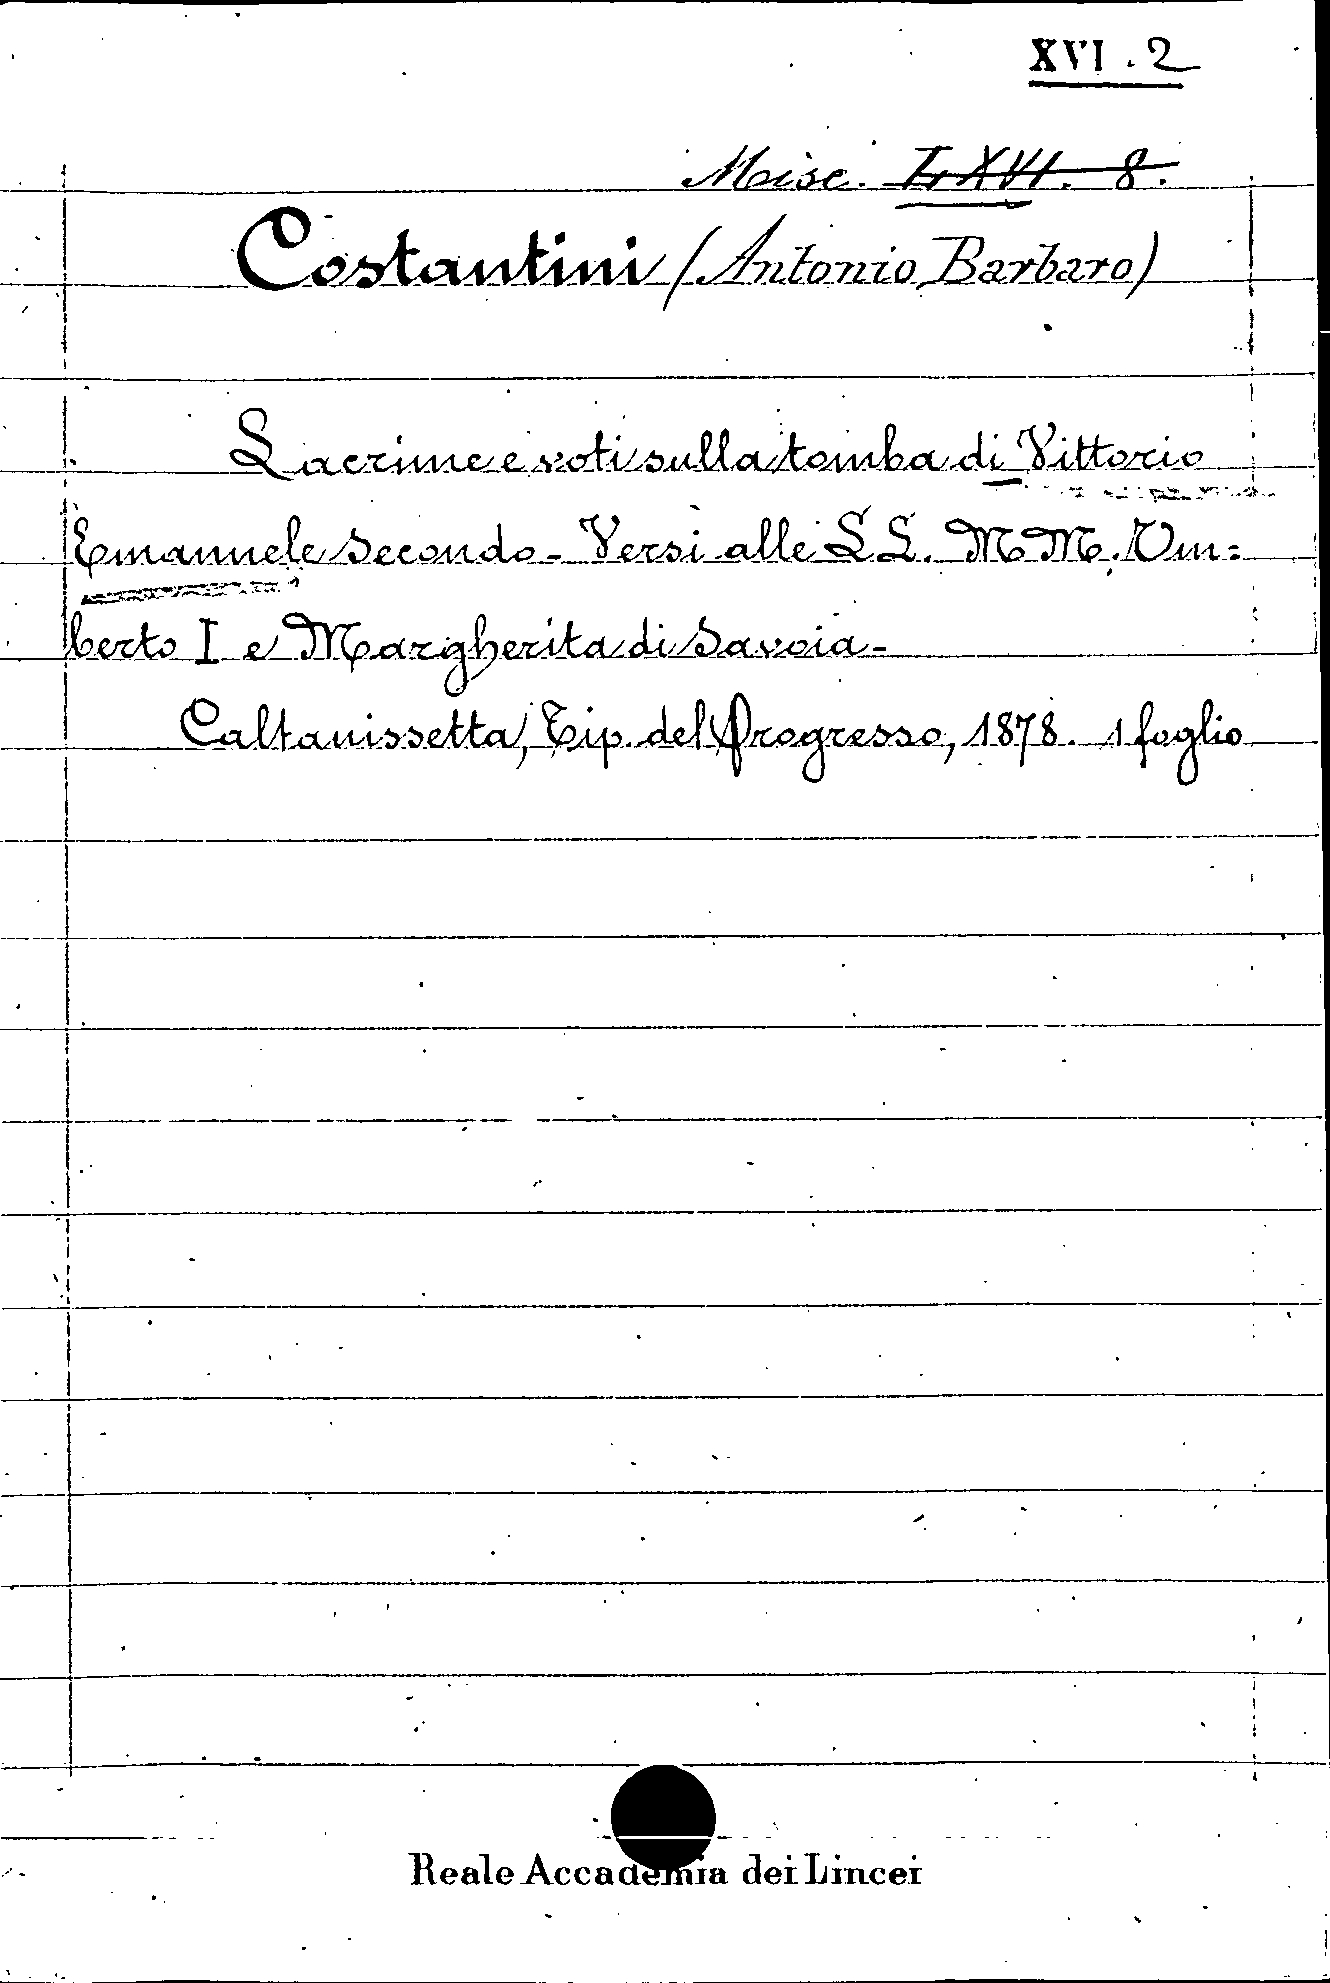 XVI . 2
Misc. LXVI. 8.
Costantini (Antonio Barbaro)
Lacrime e voti sulla tomba di Vittorio
Emanuele Secondo - Versi alle LL. MM. Um=
berto I e Margherita di Savoia -
Caltanissetta, Tip. del Progresso, 1878. 1 foglio
Reale Accademia dei Lincei